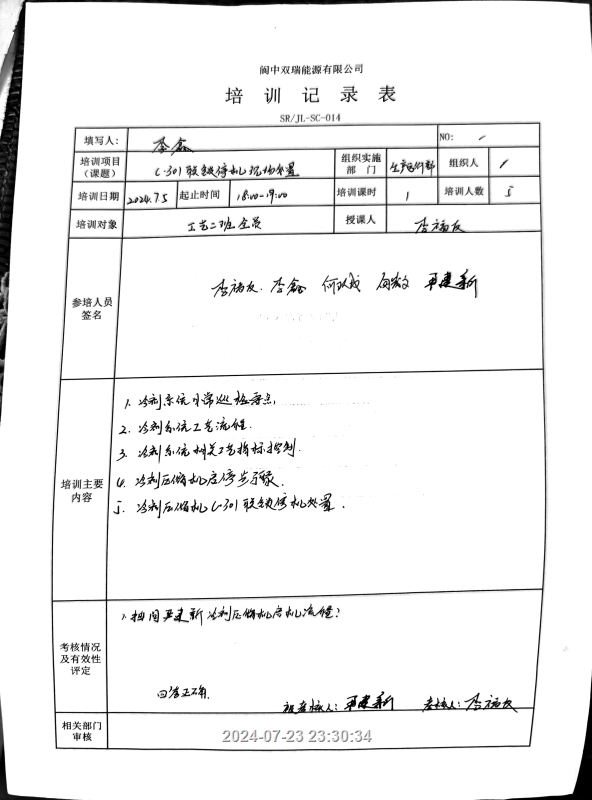 阆中双瑞能源有限公司
培训记录表
SR/JL-SC-014
填写人： 李鑫 NO: /
培训项目（课题） C-301联锁停机现场处置 组织实施部门 生产运行部 组织人 /
培训日期 2024.7.5 起止时间 18:00-19:00 培训课时 1 培训人数 5
培训对象 工艺二班全员 授课人 李福友
参培人员签名 李福友 李鑫 严建新
培训主要内容
1. 冷剂系统日常巡检要点.
2. 冷剂系统工艺流程.
3. 冷剂系统相关工艺指标控制.
4. 冷剂压缩机启停步骤.
5. 冷剂压缩机C-301联锁停机处置.
考核情况及有效性评定
1. 抽问严建新冷剂压缩机启机流程?
回答正确.
被考核人: 严建新 考核人: 李福友
相关部门审核
2024-07-23 23:30:34